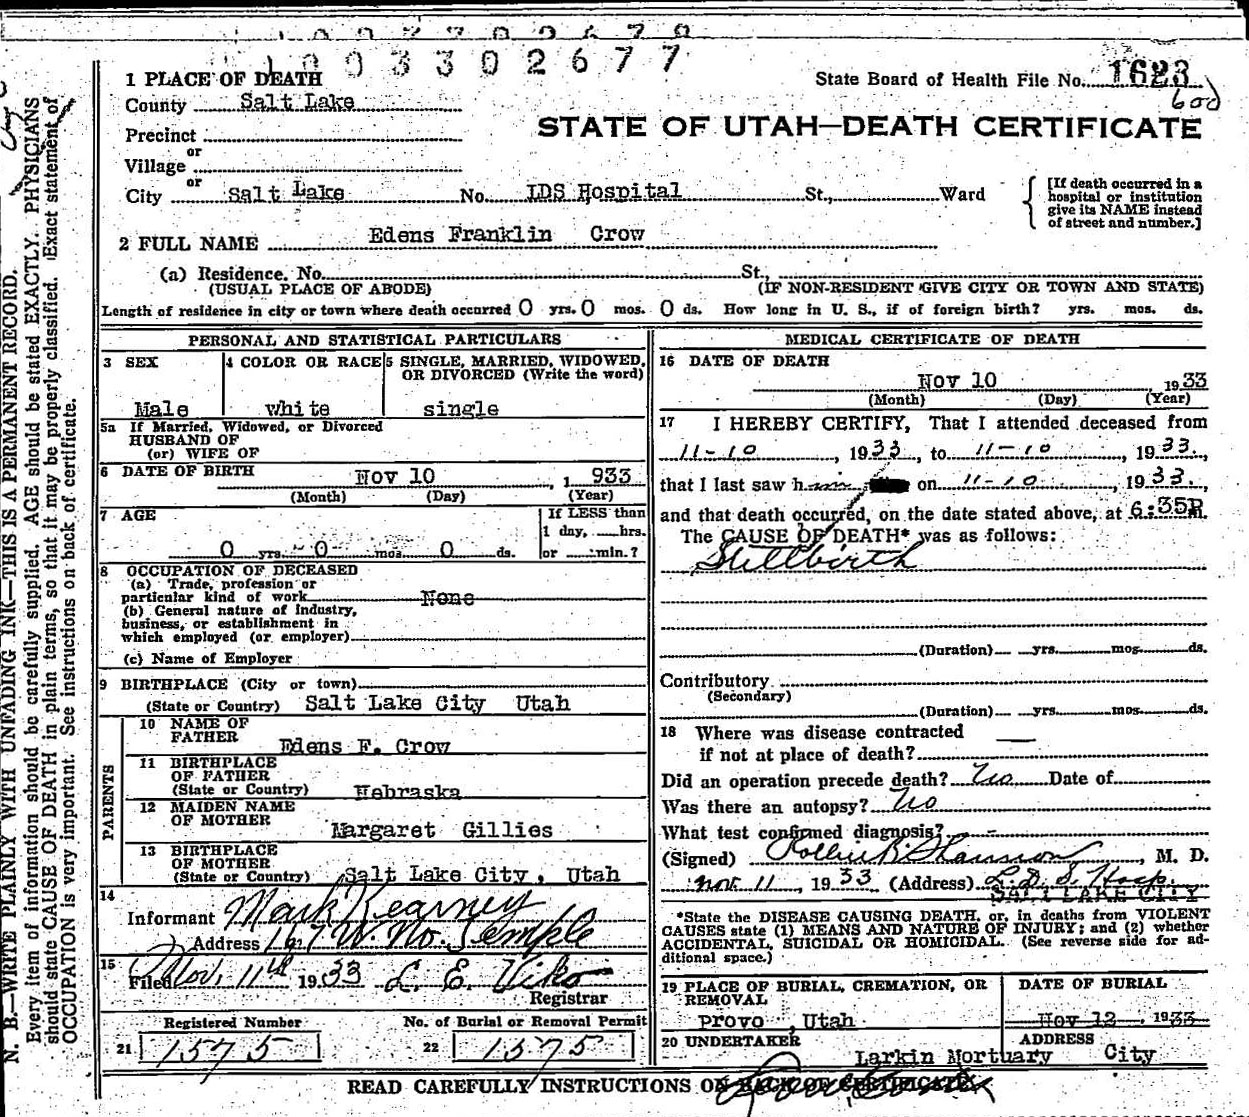 003302677
1 PLACE OF DEATH
State Board of Health File No. 1623
County Salt Lake
STATE OF UTAH—DEATH CERTIFICATE
Precinct
or
Village
or
City Salt Lake No. LDS Hospital St., Ward
[If death occurred in a
hospital or institution
give its NAME instead
of street and number.]
2 FULL NAME Edens Franklin Crow
(a) Residence. No. St.,
(USUAL PLACE OF ABODE) (IF NON-RESIDENT GIVE CITY OR TOWN AND STATE)
Length of residence in city or town where death occurred 0 yrs. 0 mos. 0 ds. How long in U. S., if of foreign birth? yrs. mos. ds.
PERSONAL AND STATISTICAL PARTICULARS
3 SEX 4 COLOR OR RACE 5 SINGLE, MARRIED, WIDOWED,
OR DIVORCED (Write the word)
Male white single
5a If Married, Widowed, or Divorced
HUSBAND OF
(or) WIFE OF
6 DATE OF BIRTH Nov 10, 1933
(Month) (Day) (Year)
7 AGE If LESS than
1 day, hrs.
0 yrs. 0 mos. 0 ds. or min.?
8 OCCUPATION OF DECEASED
(a) Trade, profession or
particular kind of work None
(b) General nature of Industry,
business, or establishment in
which employed (or employer)
(c) Name of Employer
9 BIRTHPLACE (City or town)
(State or Country) Salt Lake City Utah
PARENTS
10 NAME OF
FATHER Edens F. Crow
11 BIRTHPLACE
OF FATHER
(State or Country) Nebraska
12 MAIDEN NAME
OF MOTHER Margaret Gillies
13 BIRTHPLACE
OF MOTHER
(State or Country) Salt Lake City, Utah
14
Informant Mark Kearney
Address 167 W. No. Temple
15
Filed Nov. 11th 1933 L. E. Viko
Registrar
Registered Number No. of Burial or Removal Permit
21 1575 22 1575
MEDICAL CERTIFICATE OF DEATH
16 DATE OF DEATH
Nov 10, 1933
(Month) (Day) (Year)
17 I HEREBY CERTIFY, That I attended deceased from
11-10, 1933, to 11-10, 1933.,
that I last saw him on 11-10, 1933.,
and that death occurred, on the date stated above, at 6:35P.M.
The CAUSE OF DEATH* was as follows:
Stillbirth
(Duration) yrs. mos. ds.
Contributory
(Secondary)
(Duration) yrs. mos. ds.
18 Where was disease contracted
if not at place of death?
Did an operation precede death? No Date of
Was there an autopsy? No
What test confirmed diagnosis? -
(Signed) , M. D.
Nov. 11, 1933 (Address) L. D. S. Hosp.
SALT LAKE CITY
*State the DISEASE CAUSING DEATH, or, in deaths from VIOLENT
CAUSES state (1) MEANS AND NATURE OF INJURY; and (2) whether
ACCIDENTAL, SUICIDAL OR HOMICIDAL. (See reverse side for ad-
ditional space.)
19 PLACE OF BURIAL, CREMATION, OR
REMOVAL DATE OF BURIAL
Provo, Utah Nov 12, 1933
20 UNDERTAKER ADDRESS
Larkin Mortuary City
READ CAREFULLY INSTRUCTIONS ON BACK OF CERTIFICATE.
N. B.—WRITE PLAINLY WITH UNFADING INK—THIS IS A PERMANENT RECORD.
Every item of information should be carefully supplied. AGE should be stated EXACTLY. PHYSICIANS
should state CAUSE OF DEATH in plain terms, so that it may be properly classified. Exact statement of
OCCUPATION is very important. See instructions on back of certificate.